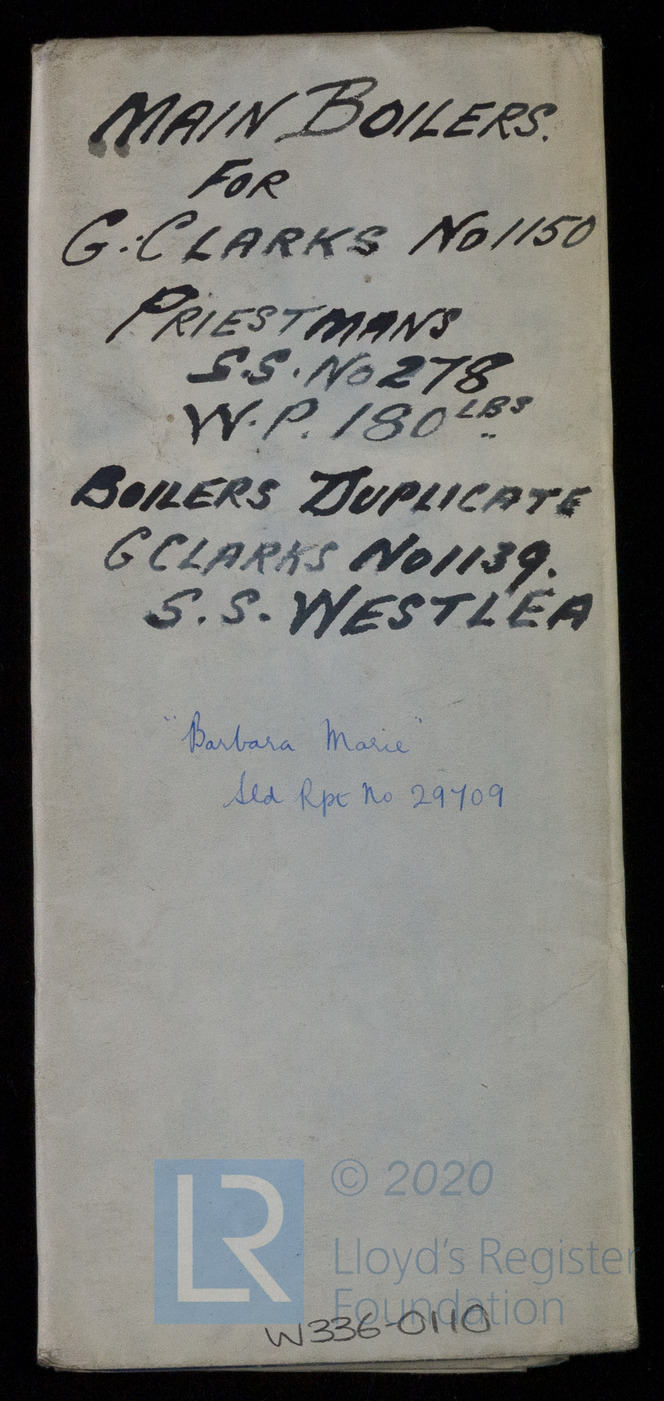 MAIN BOILERS.
FOR
G. CLARKS No 1150
PRIESTMANS
S.S. No 278
W.P. 180 LBS
BOILERS DUPLICATE
G CLARKS No 1139.
S.S. WESTLEA
"Barbara Marie"
Sld Rpt No 29709
© 2020
LR
Lloyd's Register
Foundation
W336-0110